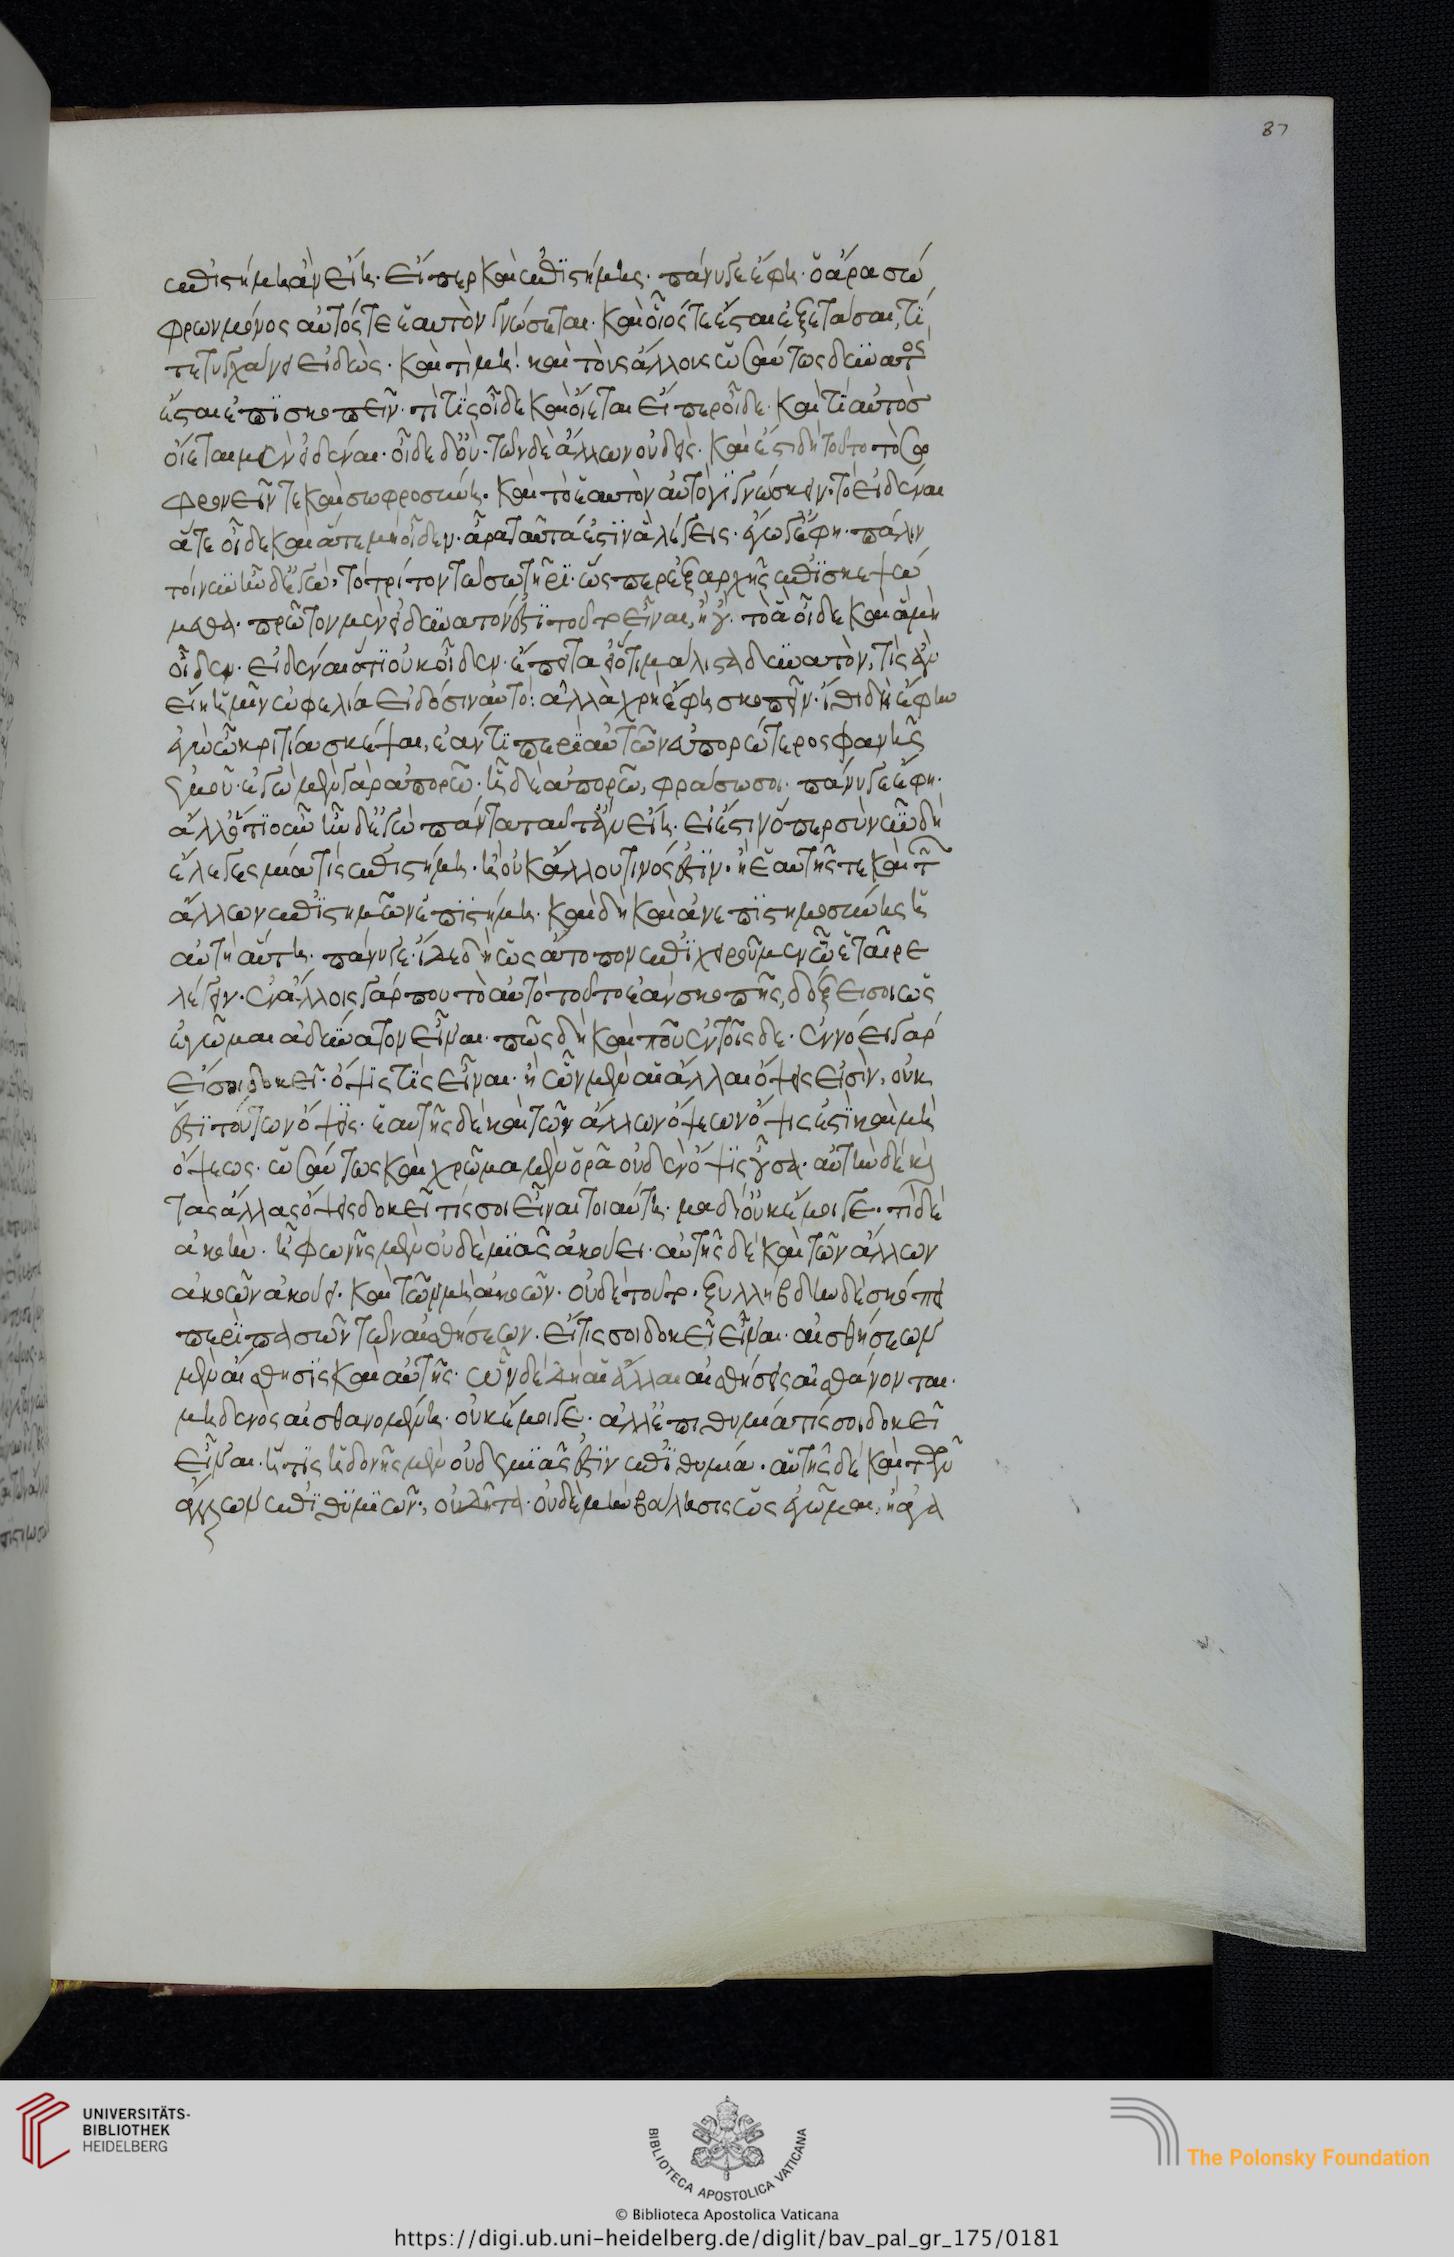 ἐπιστήμη ἂν εἴη· εἴπερ καὶ ἐπιστήμης· πάνυ γε ἔφη· ὁ ἄρα σώ
φρων μόνος αὐτός τε ἑαυτὸν γνώσεται· καὶ οἷός τε ἔσται ἐξετάσαι, τί
τε τυγχάνει εἰδὼς· καὶ τί μή· καὶ τοὺς ἄλλους ὡσαύτως δυνατὸς
ἔσται ἐπισκοπεῖν· τί τις οἶδε καὶ οἴεται εἴπερ οἶδε· καὶ τί αὐτὸσ
οἴεται μὲν εἰδέναι· οἶδε δ' οὔ· τῶν δὲ ἄλλων οὐδείς· καὶ ἔστι δὴ τοῦτο τὸ σω
φρονεῖν τε καὶ σωφροσύνη· καὶ τὸ ἑαυτὸν αὐτὸν γιγνώσκειν· τὸ εἰδέναι
ἅ τε οἶδε καὶ ἅ τε μὴ οἶδεν· ἆρα ταῦτά ἐστιν ἃ λέγεις· ἔγωγ' ἔφη· πάλιν
τοίνυν ἦν δ' ἐγώ· τὸ τρίτον τῷ σωτῆρι· ὥσπερ ἐξ ἀρχῆς ἐπισκεψώ
μεθα· πρῶτον μὲν εἰ δυνατόν ἐστι τοῦτο εἶναι, ἢ οὔ· τὸ ἃ οἶδε καὶ ἃ μὴ
οἶδεν· εἰδέναι ὅτι οὐκ οἶδεν· ἔπειτα εἰ ὅτι μάλιστα δυνατὸν, τίς ἂν
εἴη ἡμῖν ὠφελία εἰδόσιν αὐτό· ἀλλὰ χρὴ ἔφη σκοπεῖν· ἴθι δὴ ἔφην
ἐγὼ ὦ κριτία σκέψαι, ἐάν τι περὶ αὐτῶν εὐπορώτερος φανῇς
ἐμοῦ· ἐγὼ μὲν γὰρ ἀπορῶ· ᾗ δὲ ἀπορῶ, φράσω σοι· πάνυ γε ἔφη·
ἄλλο τι οὖν ἦν δ' ἐγὼ πάντα ταῦτ' ἂν εἴη· εἰ ἔστιν ὅπερ σὺ νῦν δὴ
ἔλεγες μία τίς ἐπιστήμη· ἣ οὐκ ἄλλου τινός ἐστιν· ἢ ἑαυτῆς τε καὶ τῶν
ἄλλων ἐπιστημῶν ἐπιστήμη· καὶ δὴ καὶ ἀνεπιστημοσύνης ἡ
αὐτὴ αὕτη· πάνυ γε· ἰδὲ δὴ ὡς ἄτοπον ἐπιχειροῦμεν ὦ ἑταῖρε
λέγειν· ἐν ἄλλοις γάρ που τὸ αὐτὸ τοῦτο ἐὰν σκοπῇς, δόξει σοι ὡς
ἐγᾦμαι ἀδύνατον εἶναι· πῶς δὴ καὶ ποῦ· ἐν τοῖσδε· ἐννόει γάρ
εἴ σοι δοκεῖ· ὄψις τίς εἶναι· ἣ ὧν μὲν αἱ ἄλλαι ὄψεις εἰσὶν, οὐκ
ἔστι τούτων ὄψις· ἑαυτῆς δὲ καὶ τῶν ἄλλων ὄψεων ὄψις ἐστὶ καὶ μὴ
ὄψεως· ὡσαύτως καὶ χρῶμα μὲν ὁρᾷ οὐδὲν ὄψις οὖσα· αὑτὴν δὲ καὶ
τὰς ἄλλας ὄψεις δοκεῖ τίς σοι εἶναι τοιαύτη· μὰ δί' οὐκ ἔμοιγε· τί δὲ
ἀκοὴν· ἣ φωνῆς μὲν οὐδεμιᾶς ἀκούει· αὑτῆς δὲ καὶ τῶν ἄλλων
ἀκοῶν ἀκούει· καὶ τῶν μὴ ἀκοῶν· οὐδὲ τοῦτο· ξυλλήβδην δὲ σκόπει
περὶ πασῶν τῶν αἰσθήσεων· εἴ τίς σοι δοκεῖ εἶναι· αἰσθήσεων
μὲν αἴσθησις καὶ αὑτῆς· ὧν δὲ δὴ αἱ ἄλλαι αἰσθήσεις αἰσθάνονται·
μηδενὸς αἰσθανομένη· οὐκ ἔμοιγε· ἀλλ' ἐπιθυμία τίς σοι δοκεῖ
εἶναι· ἥτις ἡδονῆς μὲν οὐδεμιᾶς ἐστὶν ἐπιθυμία· αὑτῆς δὲ καὶ τῶν
ἄλλων ἐπιθυμιῶν·, οὐ δῆτα· οὐδὲ μὴν βούλησις ὡς ἐγᾦμαι· ἣ ἀγα
UNIVERSITÄTS-
BIBLIOTHEK
HEIDELBERG
BIBLIOTECA APOSTOLICA VATICANA
The Polonsky Foundation
© Biblioteca Apostolica Vaticana
https://digi.ub.uni-heidelberg.de/diglit/bav_pal_gr_175/0181